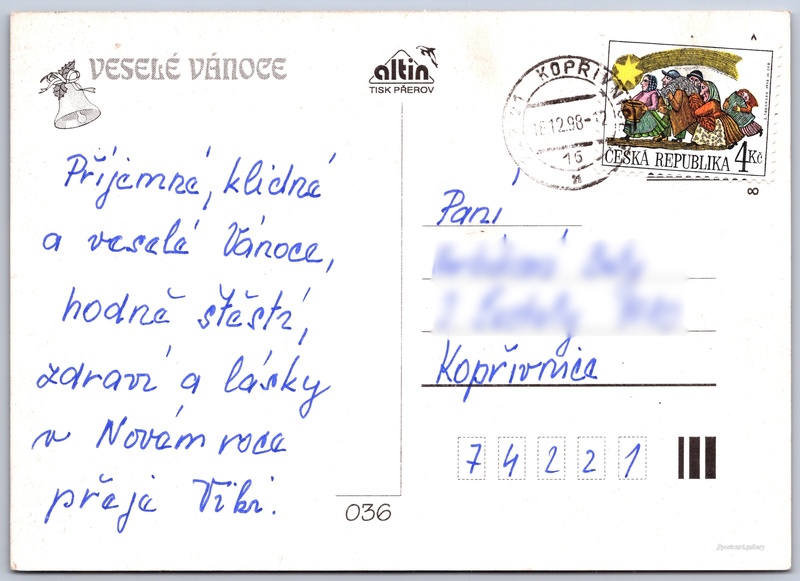 VESELÉ VÁNOCE
altin
TISK PŘEROV
KOPŘIVN
16.12.98-12
16
ČESKÁ REPUBLIKA 4Kč
Příjemné, klidné
a veselé Vánoce,
hodně štěstí,
zdraví a lásky
v Novém roce
přeje Viki.
Paní
Kopřivnice
74221
036
//postcard.gallery